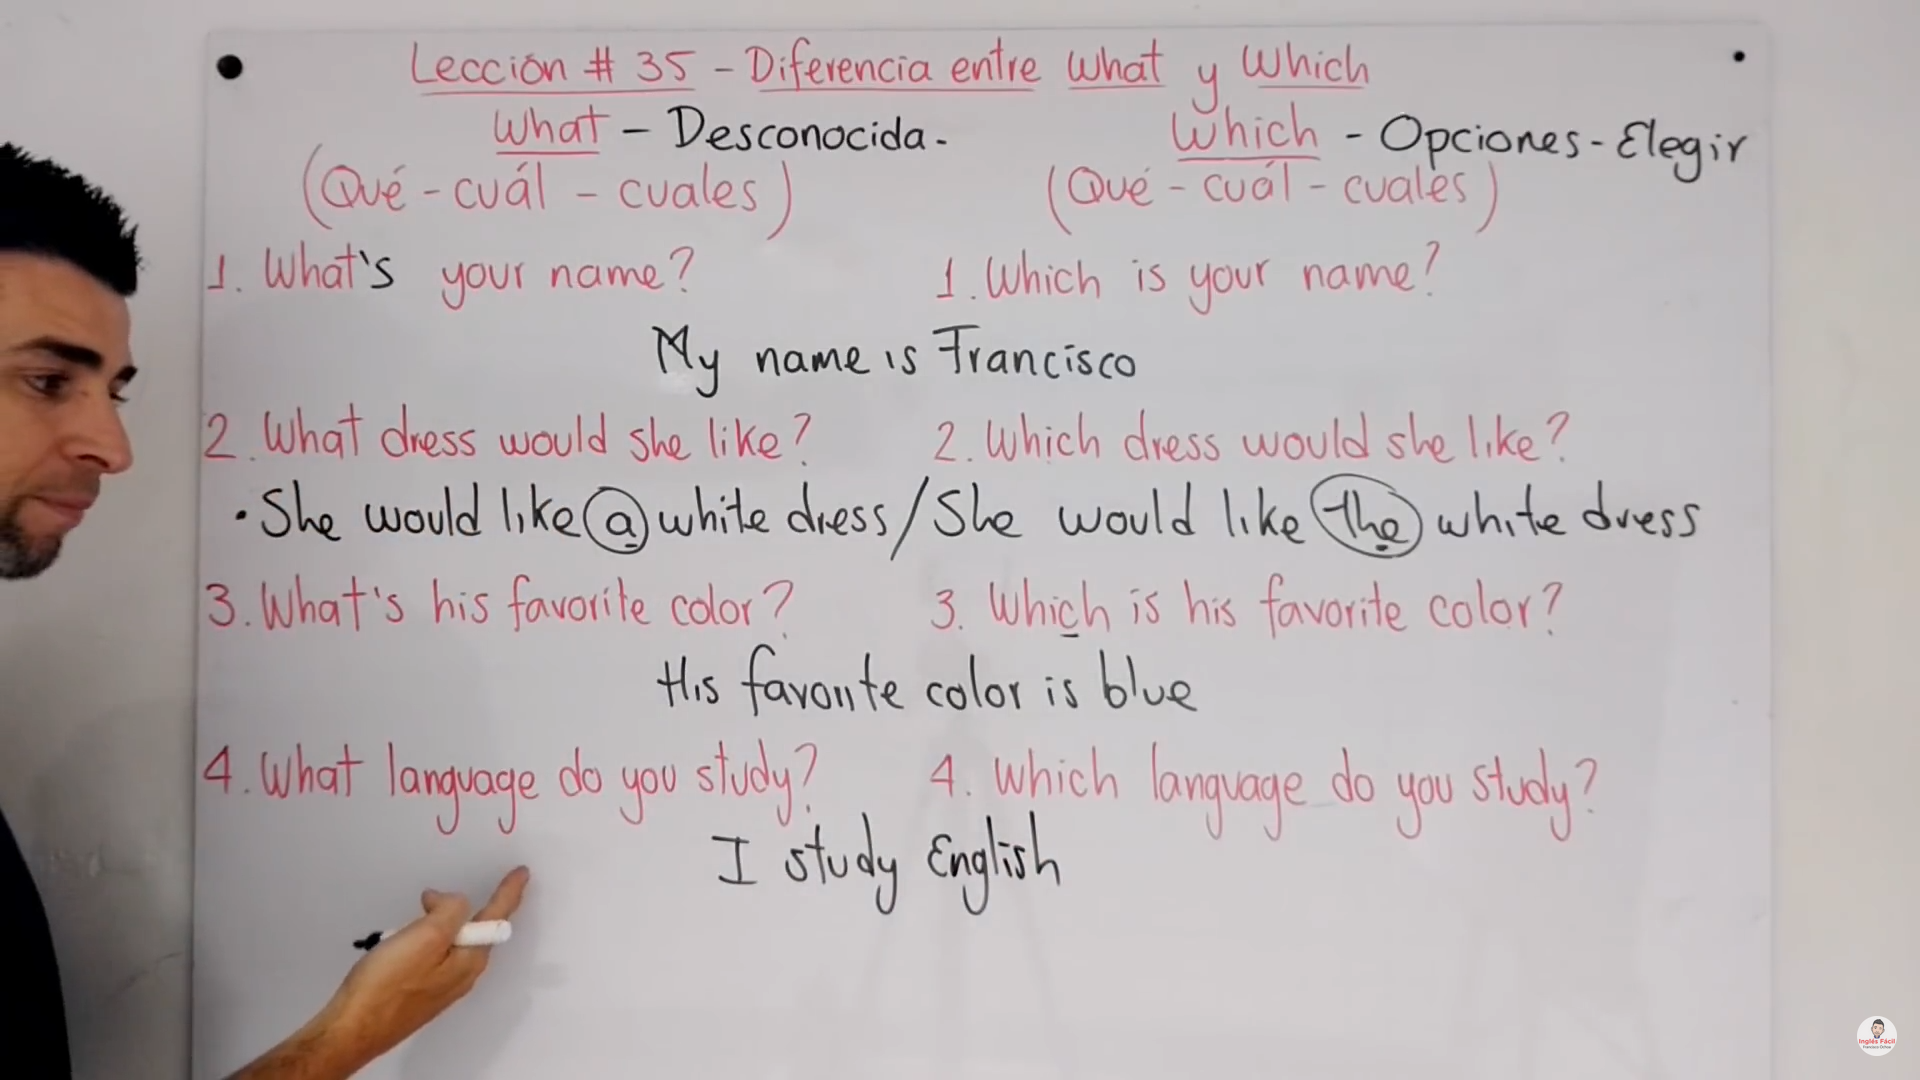 Lección # 35 - Diferencia entre What y Which
What - Desconocida.
Which - Opciones - Elegir
(Qué - cuál - cuales)
(Qué - cuál - cuales)
1. What's your name?
1. Which is your name?
My name is Francisco
2. What dress would she like?
2. Which dress would she like?
• She would like a white dress / She would like the white dress
3. What's his favorite color?
3. Which is his favorite color?
His favorite color is blue
4. What language do you study?
4. Which language do you study?
I study English
Inglés Fácil